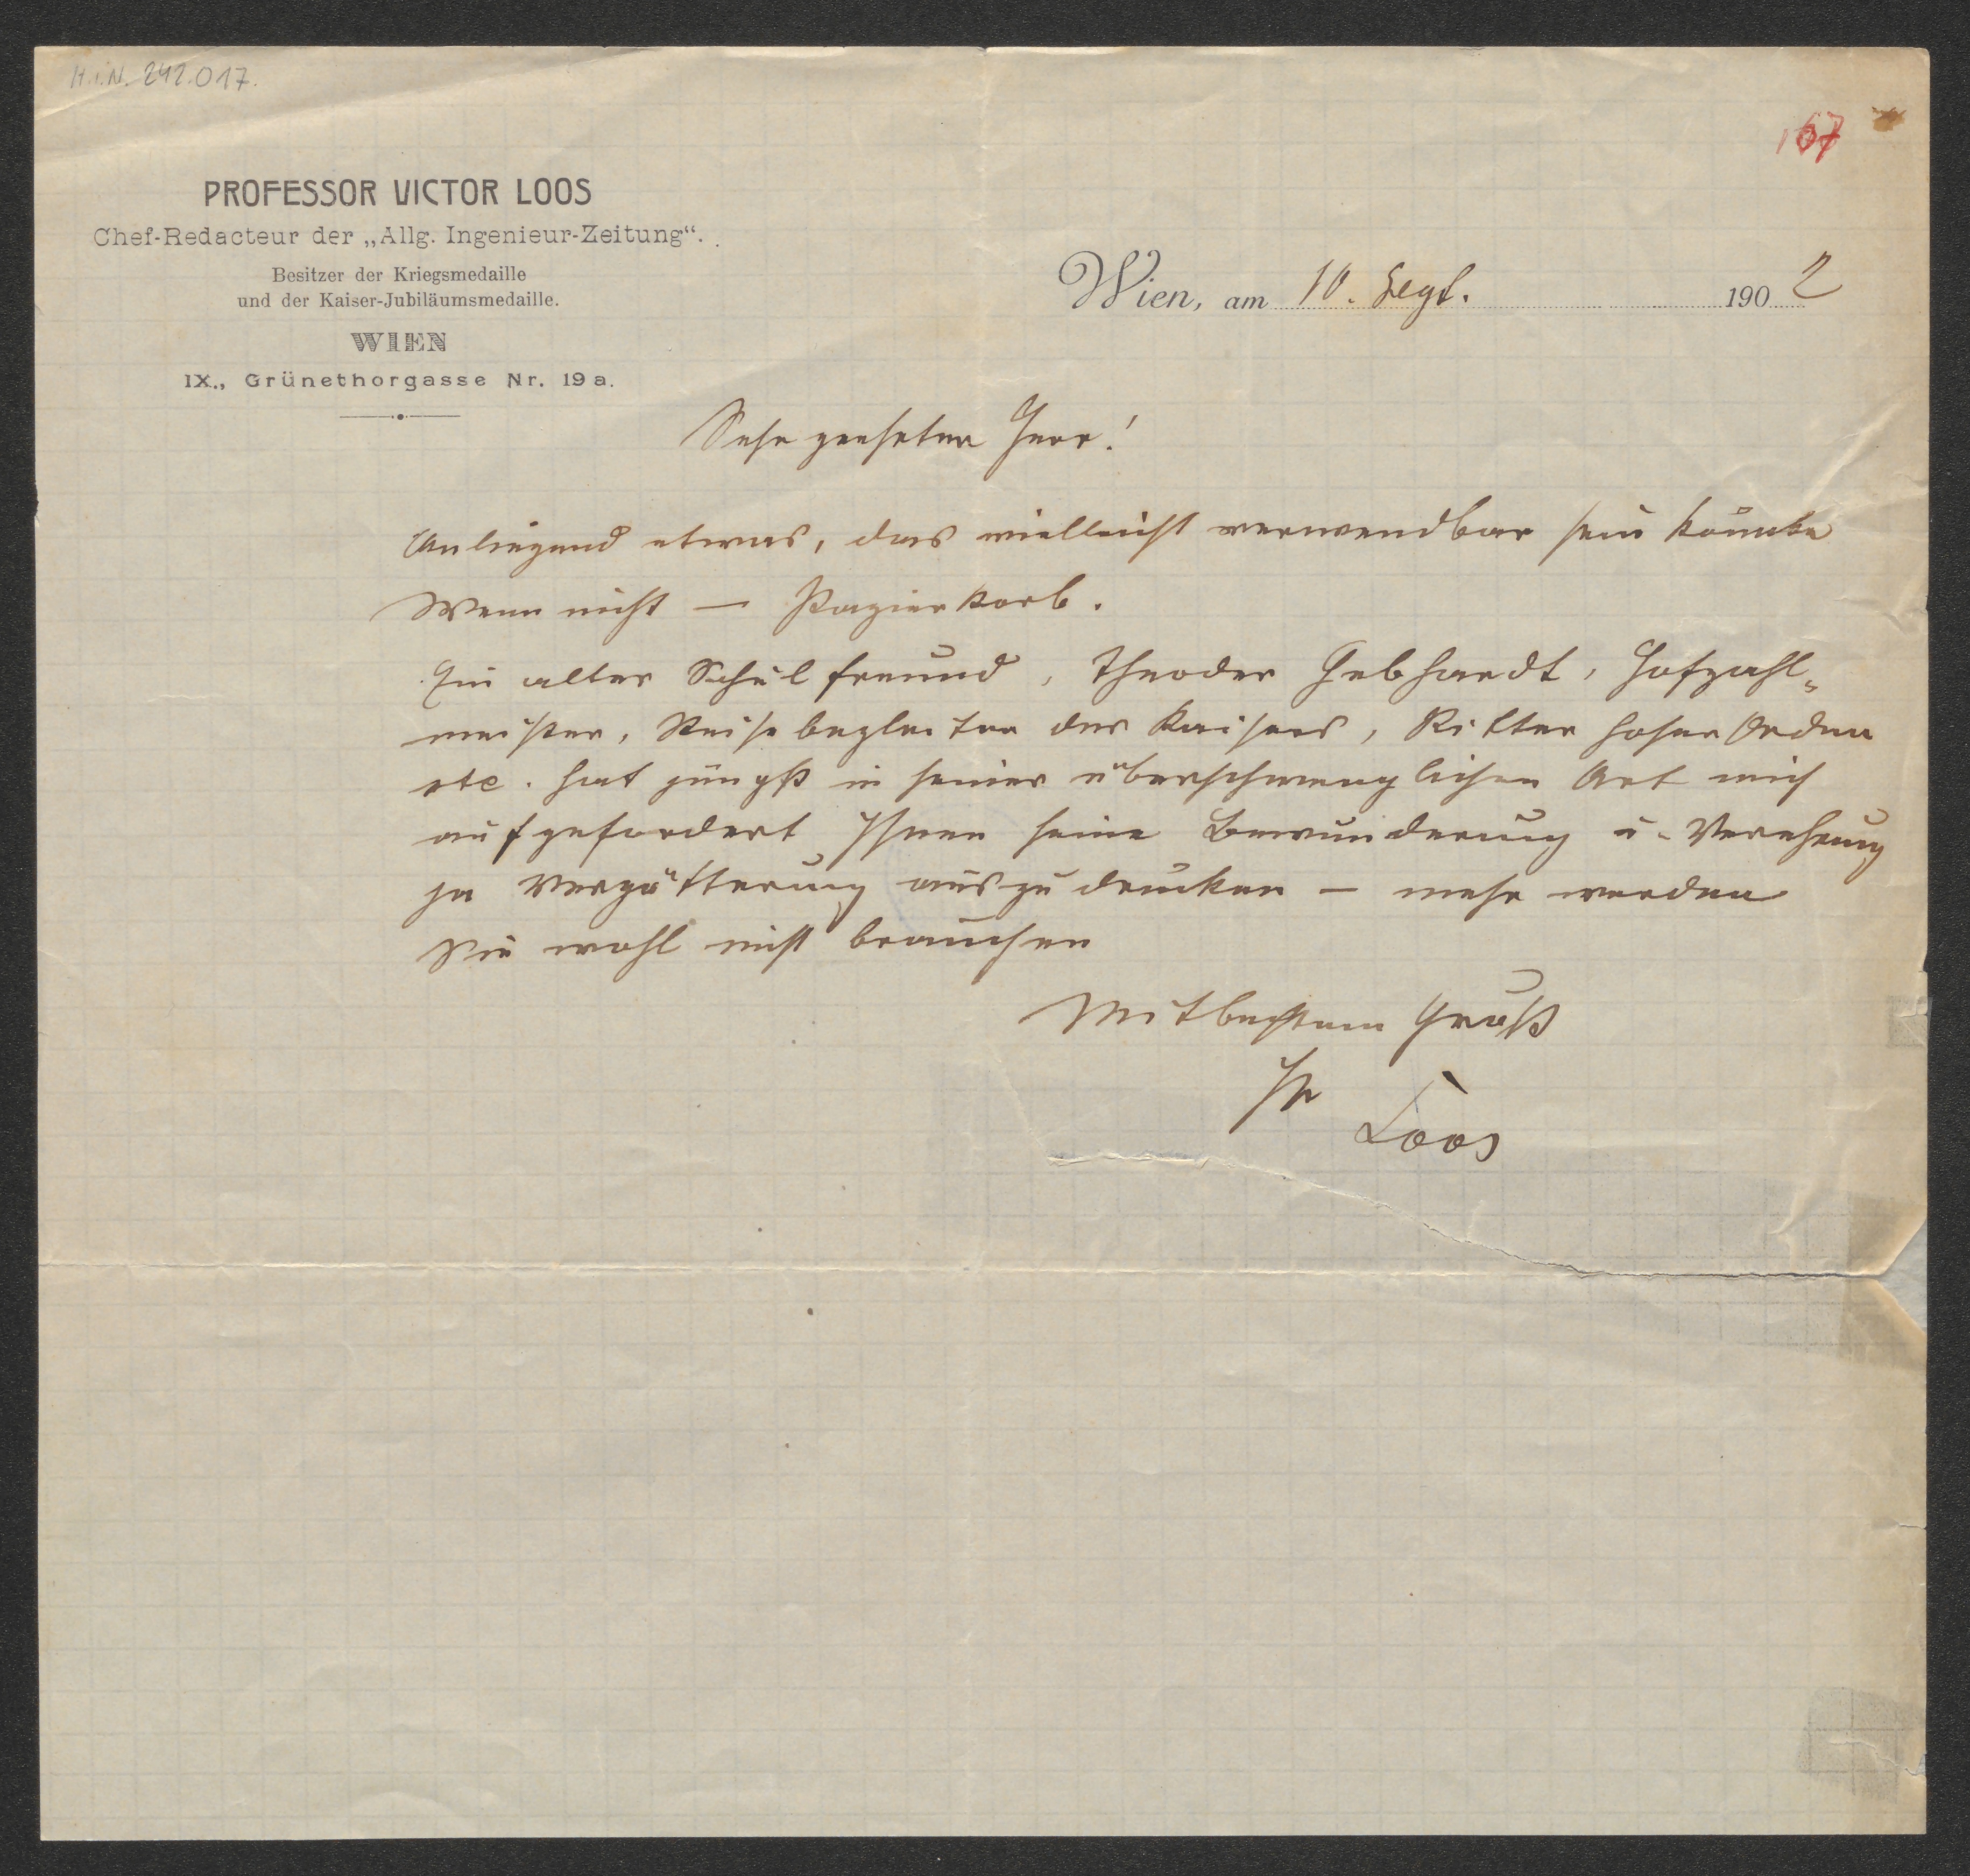 H.I.N. 242.017.
167
PROFESSOR VICTOR LOOS
Chef-Redacteur der „Allg. Ingenieur-Zeitung“.
Besitzer der Kriegsmedaille
und der Kaiser-Jubiläumsmedaille.
WIEN
IX., Grünethorgasse Nr. 19 a.
Wien, am 10. Sept. 1902
Sehr geehrter Herr!
Anliegend etwas, das vielleicht verwendbar sein könnte
Wenn nicht — Papierkorb.
Ein alter Schulfreund, Theodor Gebhardt, Hofzahl„
meister, Reisebegleiter des Kaisers, Ritter hoher Orden
etc. hat jüngst in seiner überschwenglichen Art mich
aufgefordert Ihnen seine Bewunderung u. Verehrung
ja Vergötterung auszudrücken — mehr werden
Sie wohl nicht brauchen
Mit bestem Gruß
Ihr
Loos